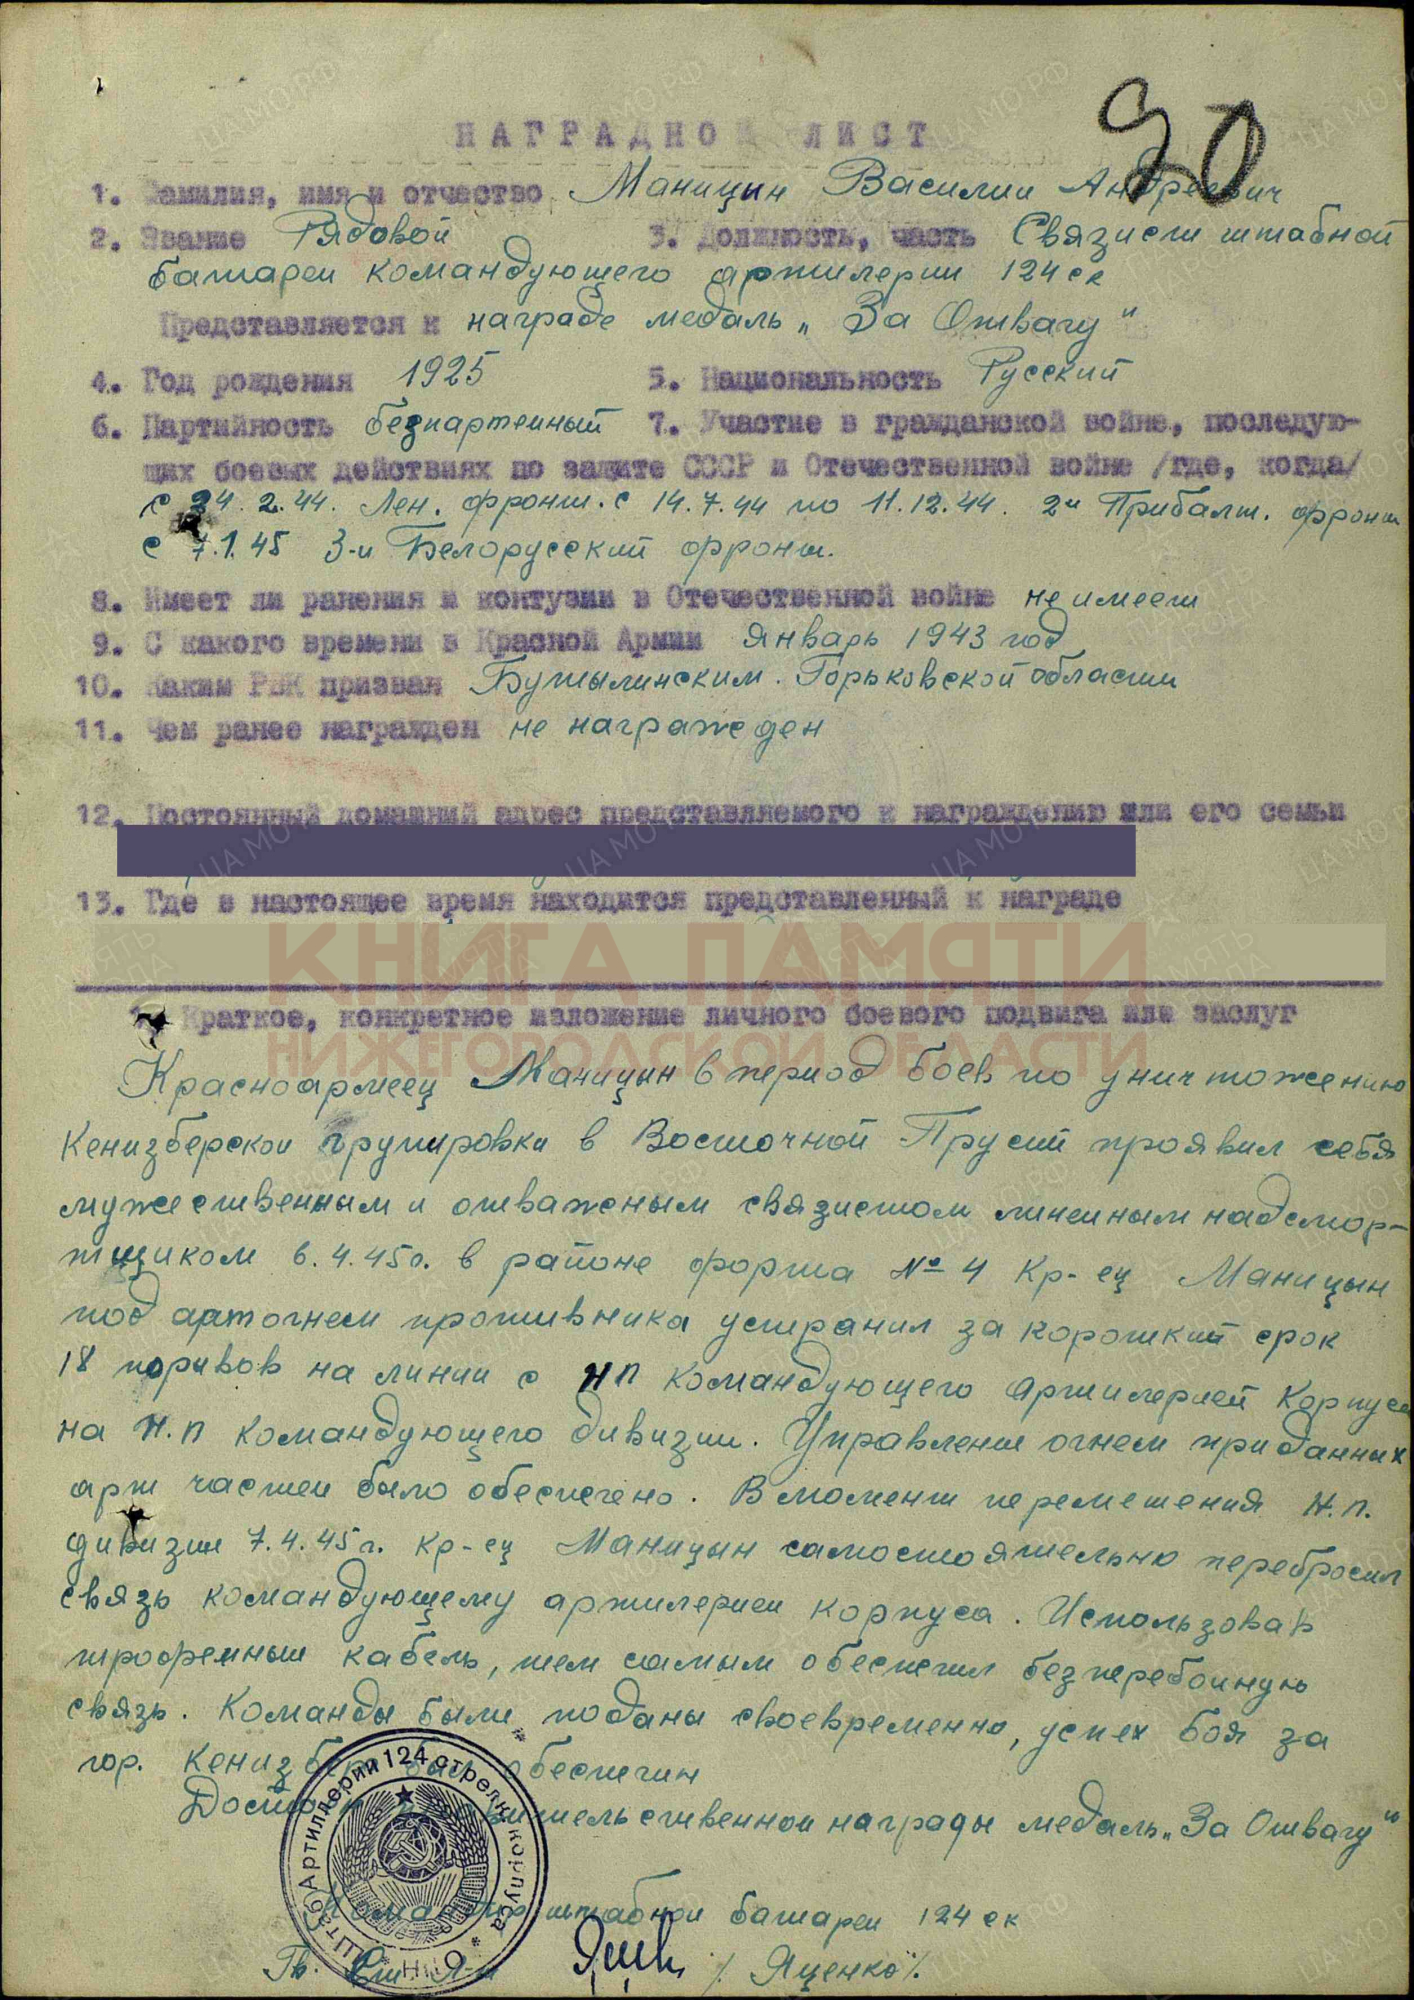 90
НАГРАДНОЙ ЛИСТ
1. Фамилия, имя и отчество Маницын Василий Андреевич
2. Звание Рядовой 3. Должность, часть Связист штабной
батареи командующего артилерии 124 ск
Представляется к награде медаль „За Отвагу"
4. Год рождения 1925 5. Национальность Русский
6. Партийность безпартейный 7. Участие в гражданской войне, последую-
щих боевых действиях по защите СССР и Отечественной войне /где, когда/
с 24.2.44. Лен. фронт. с 14.7.44 по 11.12.44. 2й Прибалт. фронт
с 7.1.45 3-й Белорусский фронт.
8. Имеет ли ранения и контузии в Отечественной войне не имеет
9. С какого времени в Красной Армии январь 1943 год
10. Каким РВК призван Бутылинским. Горьковской области
11. Чем ранее награжден не награжден
12. Постоянный домашний адрес представляемого к награждению или его семьи
13. Где в настоящее время находится представленный к награде
КНИГА ПАМЯТИ
Краткое, конкретное изложение личного боевого подвига или заслуг
НИЖЕГОРОДСКОЙ ОБЛАСТИ
Красноармеец Маницын в период боев по уничтожению
Кенизберской групировки в Восточной Прусий проявил себя
мужественным и отважным связистом линейным надсмор-
тщиком 6.4.45г. в районе форта № 4 Кр-ец Маницын
под артогнем противника устранил за короткий срок
18 поривов на линии с НП командующего артилерией Корпуса
на Н.П командующего дивизии. Управление огнем приданных
арт частей было обеспечено. В момент перемещения Н.П.
дивизии 7.4.45г. кр-ец Маницын самостоятельно перебросил
связь командующему артилерией корпуса. Использовав
трофейный кабель, тем самым обеспечил безперебойную
связь. Команды были поданы своевременно, успех боя за
гор. Кенизберг был обеспечин
Достоин правительственной награды медаль „За Отвагу"
Командир штабной батареи 124 ск
Гв. Ст. Л-т /Яценко/.
Штаб Артиллерии 124 стрелк. корпуса